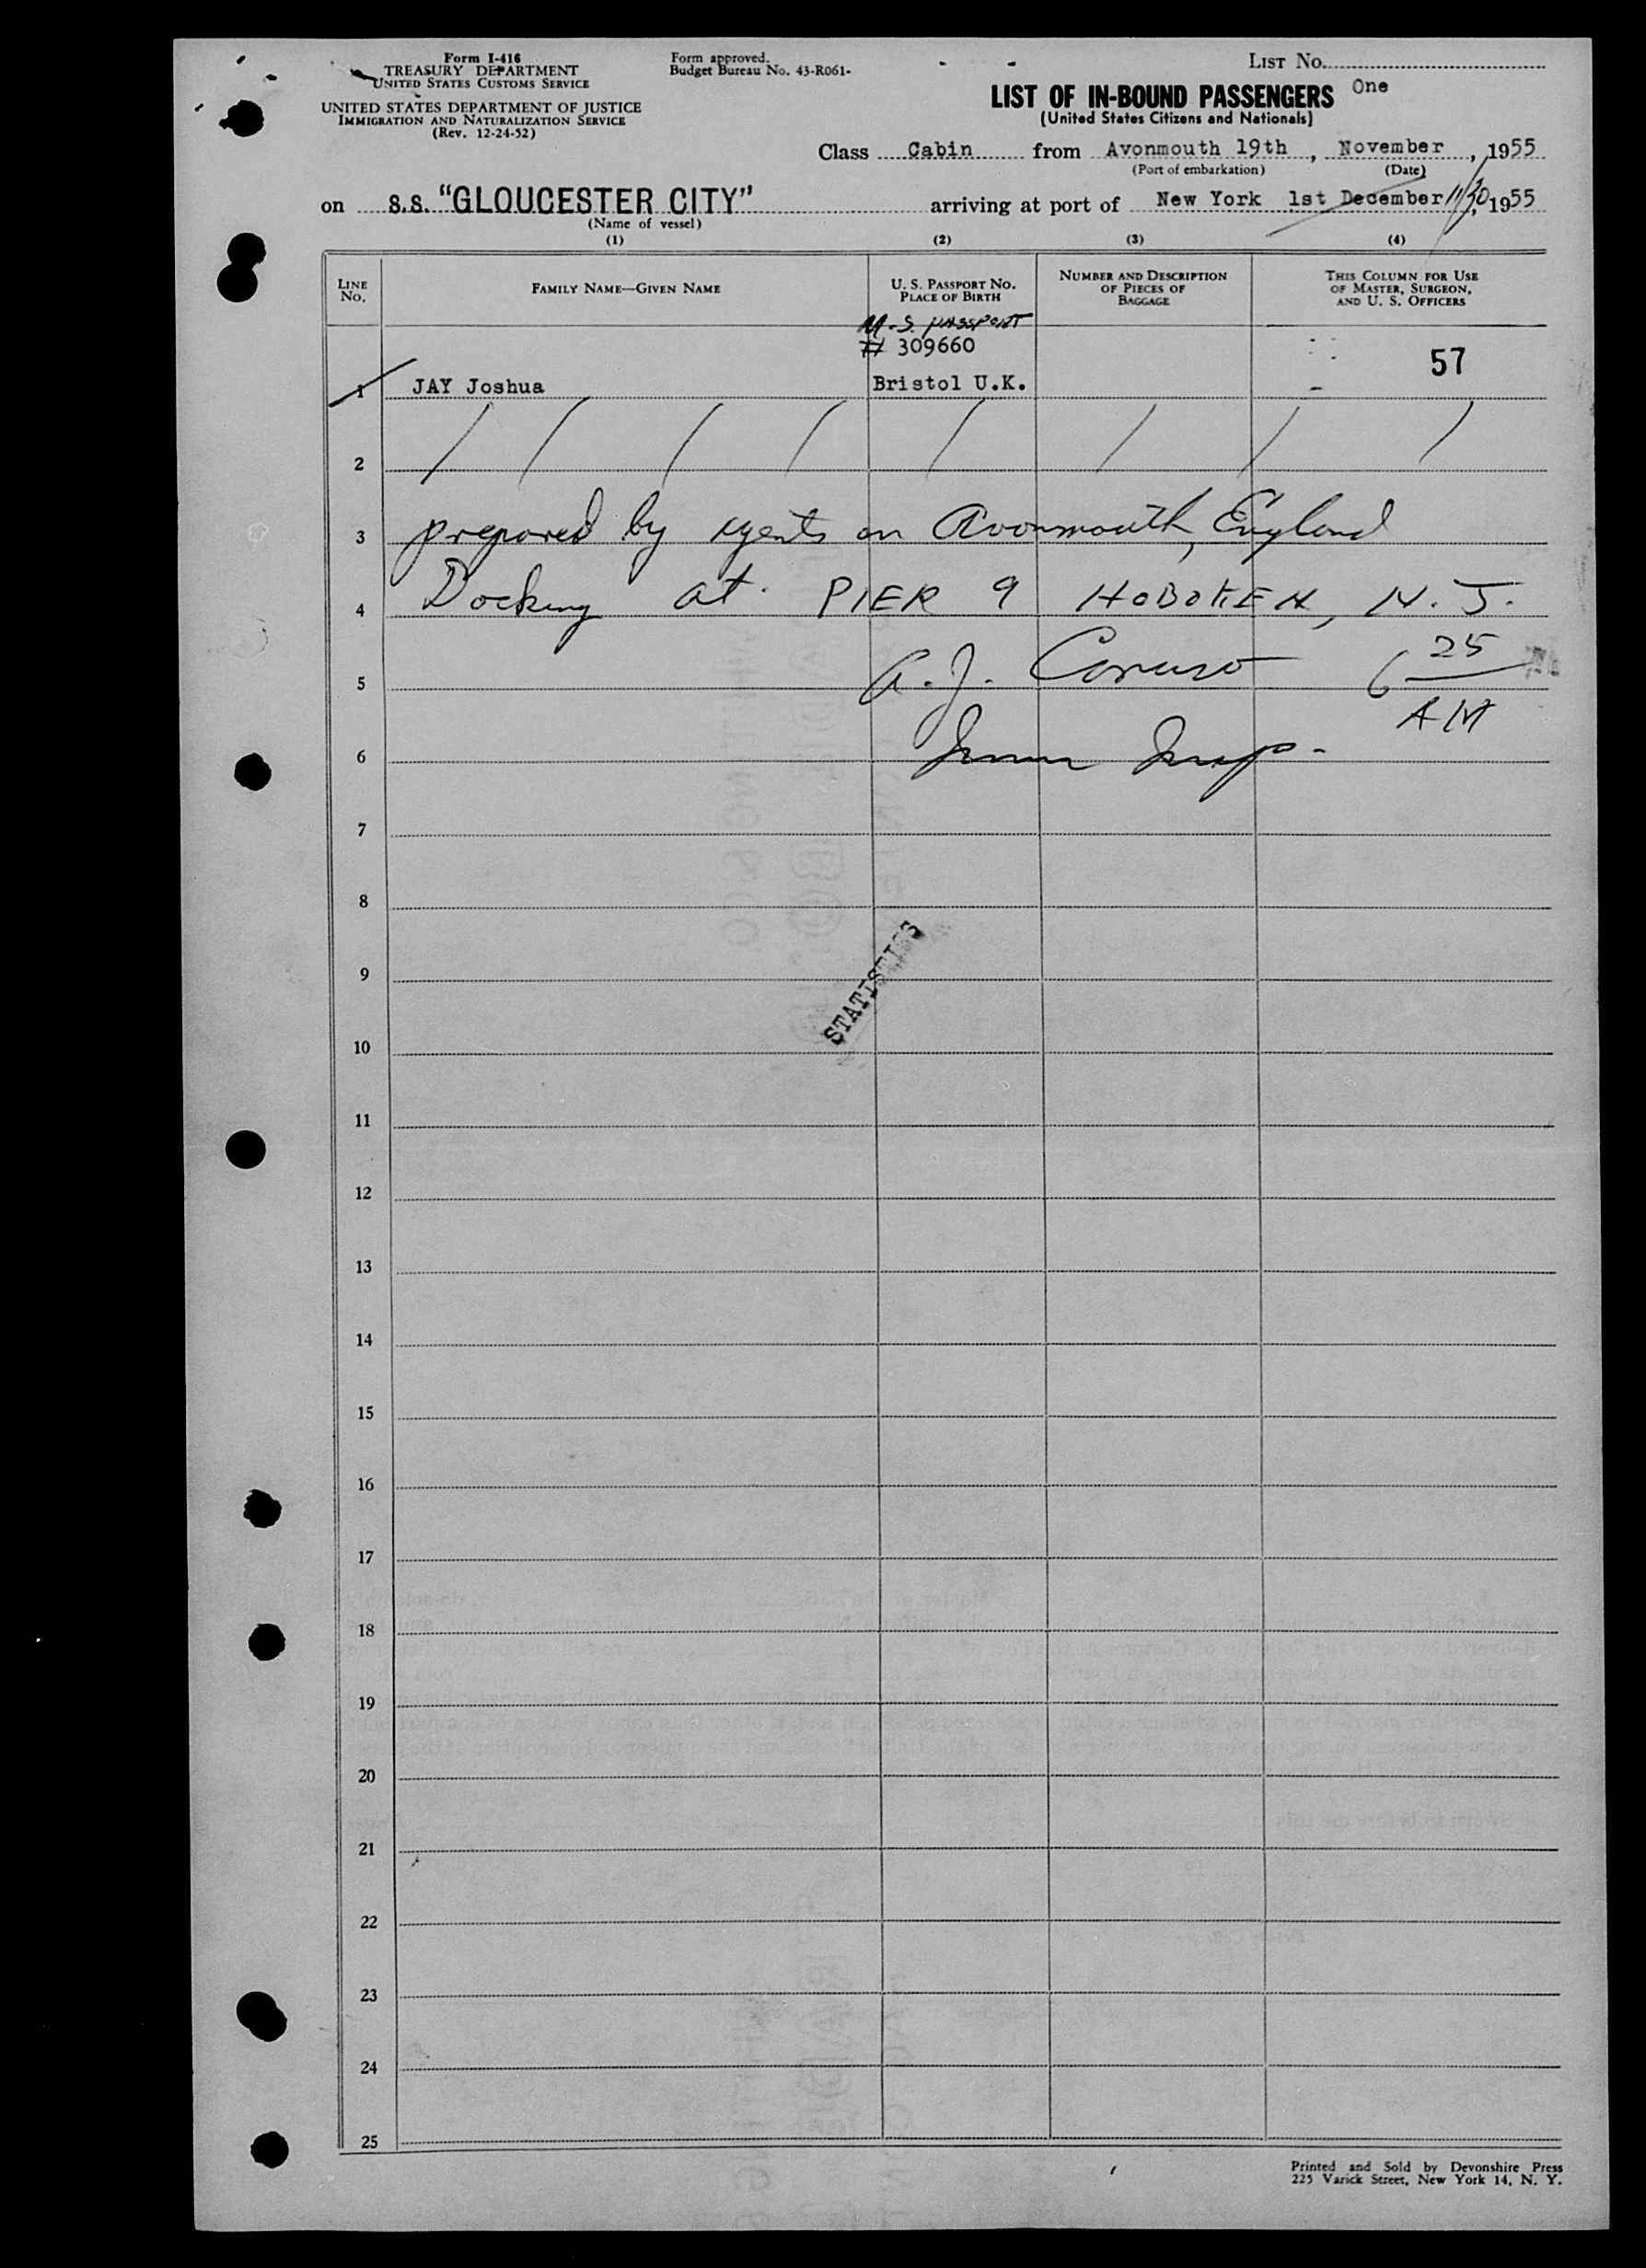 Form I-416
TREASURY DEPARTMENT
UNITED STATES CUSTOMS SERVICE
UNITED STATES DEPARTMENT OF JUSTICE
IMMIGRATION AND NATURALIZATION SERVICE
(Rev. 12-24-52)
Form approved.
Budget Bureau No. 43-R061-
LIST No.
One
LIST OF IN-BOUND PASSENGERS
(United States Citizens and Nationals)
Class Cabin from Avonmouth 19th, November, 1955
(Port of embarkation) (Date)
on S.S. "GLOUCESTER CITY" arriving at port of New York 1st December 11/30 1955
(Name of vessel)
(1) (2) (3) (4)
LINE No. FAMILY NAME—GIVEN NAME U. S. PASSPORT No. PLACE OF BIRTH NUMBER AND DESCRIPTION OF PIECES OF BAGGAGE THIS COLUMN FOR USE OF MASTER, SURGEON, AND U. S. OFFICERS
U.S. PASSPORT
# 309660
57
1 JAY Joshua Bristol U.K.
2
3 prepared by agents in Avonmouth, England
4 Docking at PIER 9 HOBOKEN, N.J.
5 A.J. Caruso 6 25 AM
6 Immn Insp.
7
8
9
STATISTICS
10
11
12
13
14
15
16
17
18
19
20
21
22
23
24
25
Printed and Sold by Devonshire Press
225 Varick Street, New York 14, N. Y.